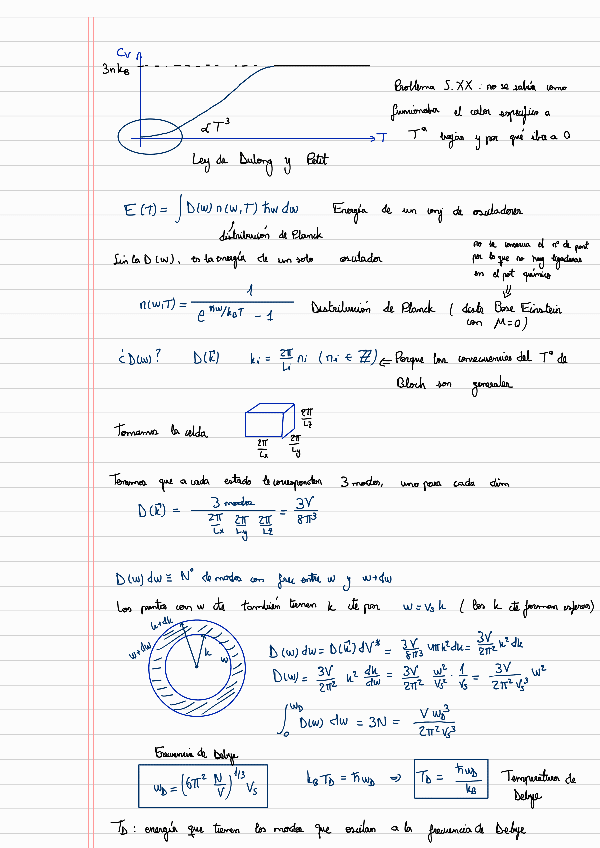 Cv
3nkB
∝T³
T
Problema S.XX: no se sabía como
funcionaba el calor específico a
Tª bajas y por qué iba a 0
Ley de Dulong y Petit
E(T) = ∫ D(ω) n(ω,T) ħω dω Energía de un conj de osciladores
distribución de Planck
Sin la D(ω), es la energía de un solo oscilador
no se conserva el nº de part
por lo que no hay ligaduras
en el pot químico
n(ω,T) = 1 / (e^(ħω/kBT) - 1) Distribución de Planck (distr Bose Einstein
con μ=0)
¿D(ω)? D(k⃗) ki = 2π/Li ni (ni ∈ ℤ) ⇐ Porque las consecuencias del Tª de
Bloch son generales
Tomamos la celda 2π/Lx 2π/Ly 2π/Lz
Tenemos que a cada estado le corresponden 3 modos, uno para cada dim
D(k⃗) = 3 modos / (2π/Lx 2π/Ly 2π/Lz) = 3V/8π³
D(ω)dω ≡ Nº de modos con frec entre ω y ω+dω
Los puntos con ω cte también tienen k cte por ω = vs k (los k cte forman esferas)
k+dk
ω+dω
k
ω
D(ω)dω = D(k⃗)dV* = 3V/8π³ 4πk²dk = 3V/2π² k²dk
D(ω) = 3V/2π² k² dk/dω = 3V/2π² ω²/vs² · 1/vs = 3V/2π²vs³ ω²
∫₀^ωD D(ω) dω = 3N = VωD³/2π²vs³
Frecuencia de Debye
ωD = (6π² N/V)^(1/3) vs
kB TD = ħωD ⇒ TD = ħωD/kB Temperatura de
Debye
TD: energía que tienen los modos que oscilan a la frecuencia de Debye